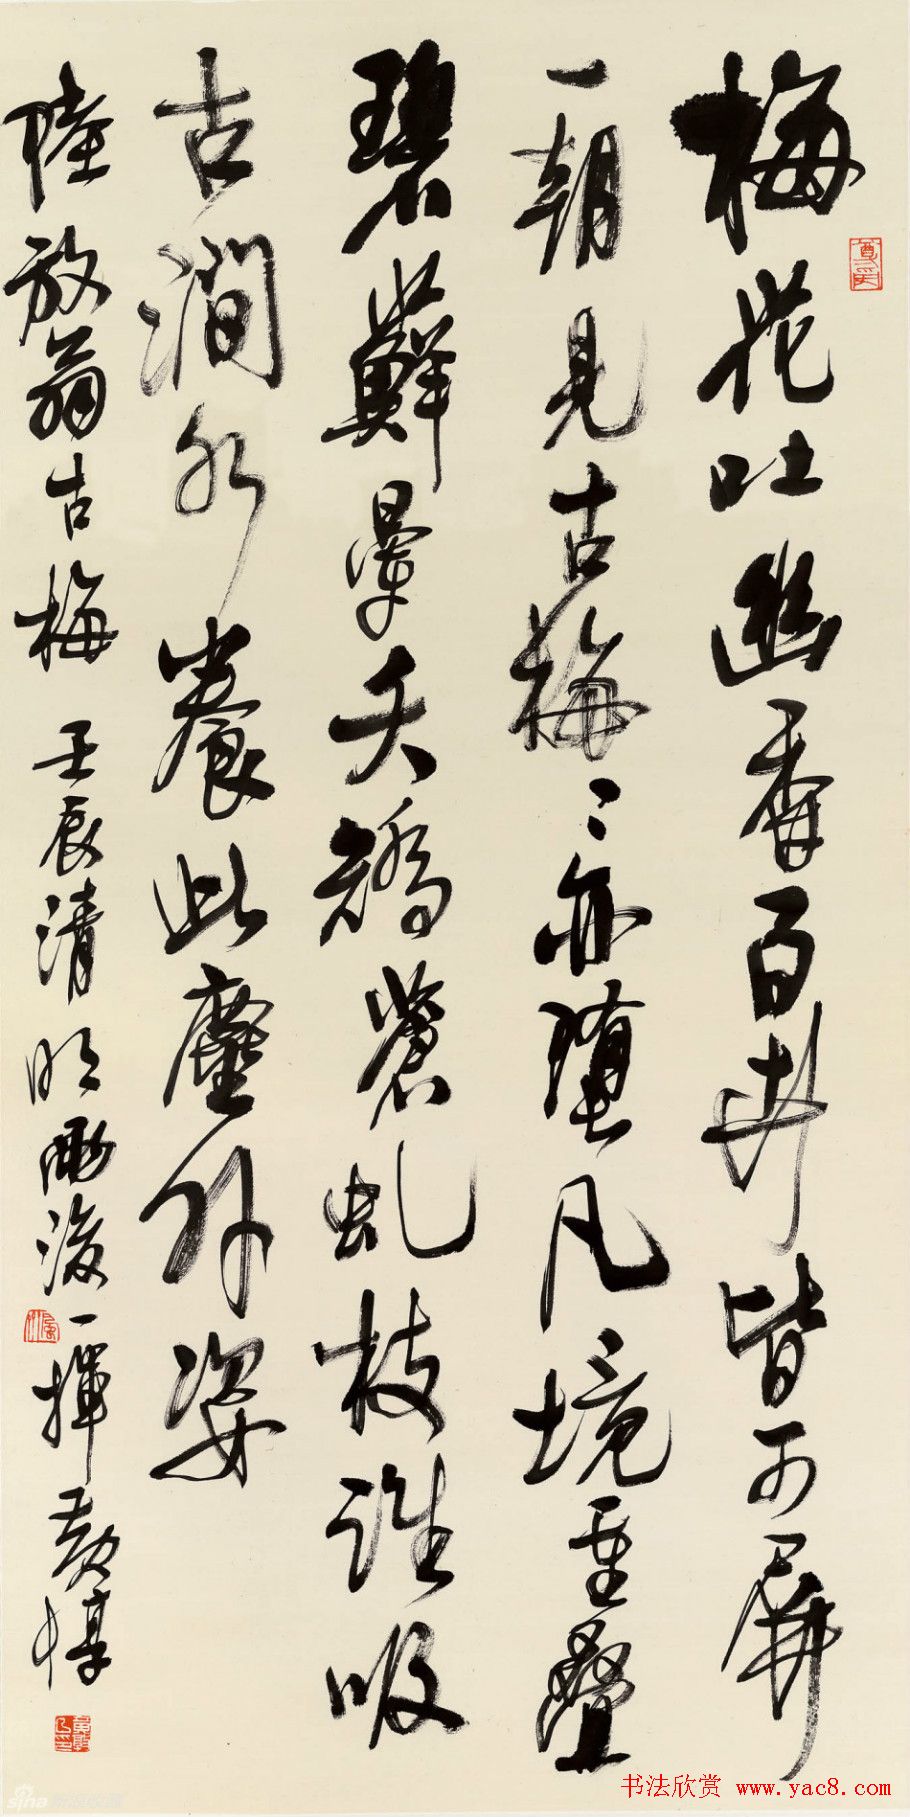 梅花吐幽香百卉皆可屏
一朝見古梅〻亦墮凡境重疊
碧蘚暈夭矯蒼虬枝誰吸
古澗水養此塵外姿
陸放翁古梅 壬辰清明雨後一揮 黃惇
sina
书法欣赏 www.yac8.com